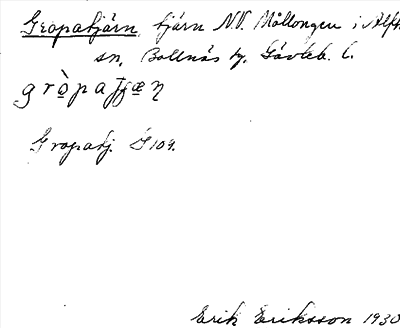 Gropatjärn, tjärn N.V. Mållongen i Alfta
sn, Bollnäs tg. Gävleb. l.
gròpaʃæɳ
Gropatj. G 109.
Erik Eriksson 1930